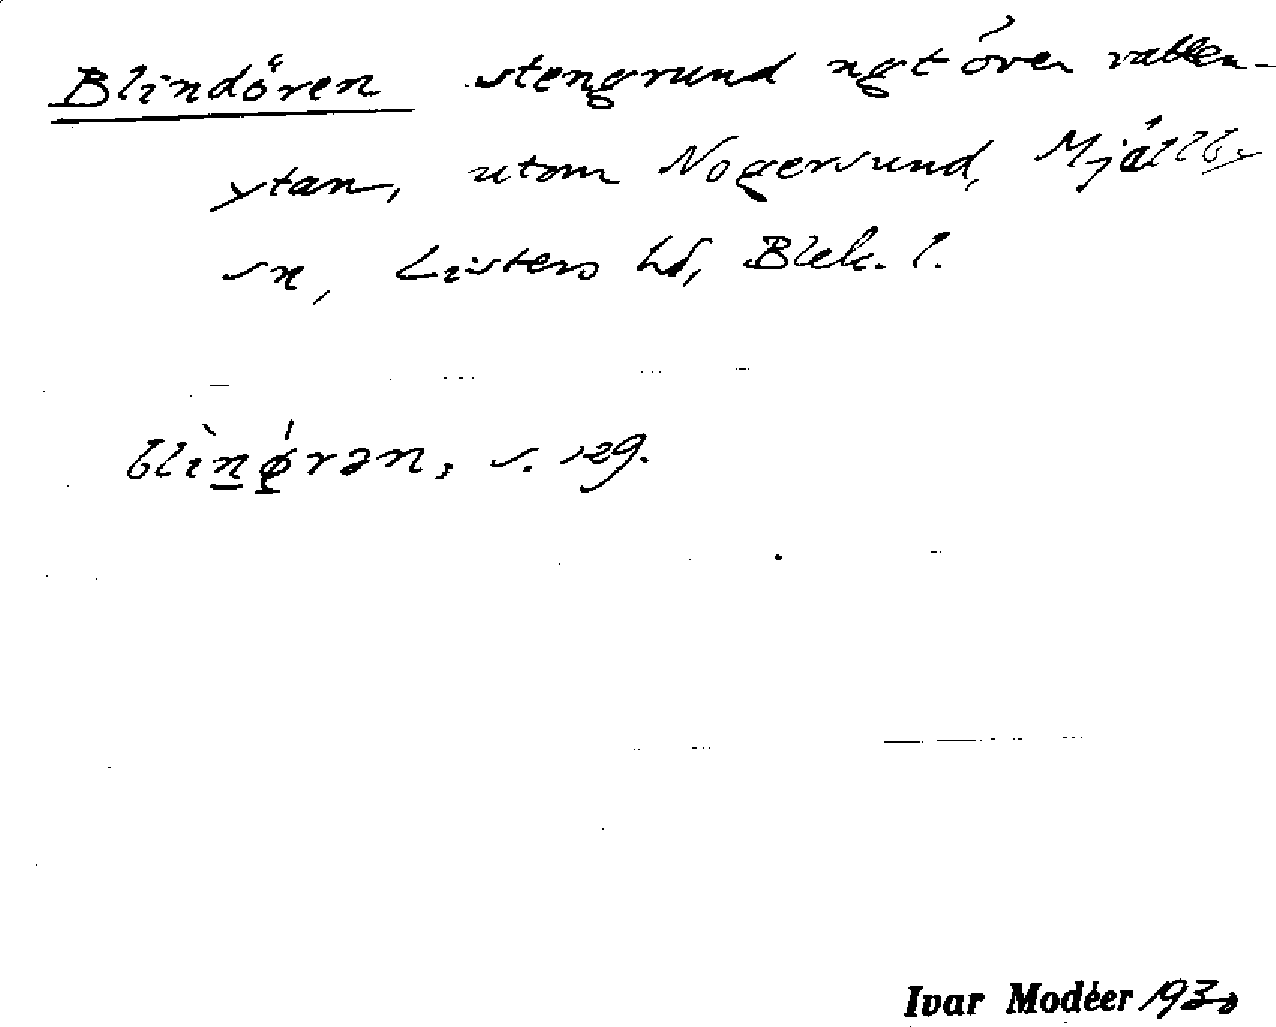 Blindören stengrund ngt över vatten-
ytan, utom Nogersund, Mjällby
sn, Listers hd, Blek. l.
blìnǿrən, s. 129.
Ivar Modéer 1930